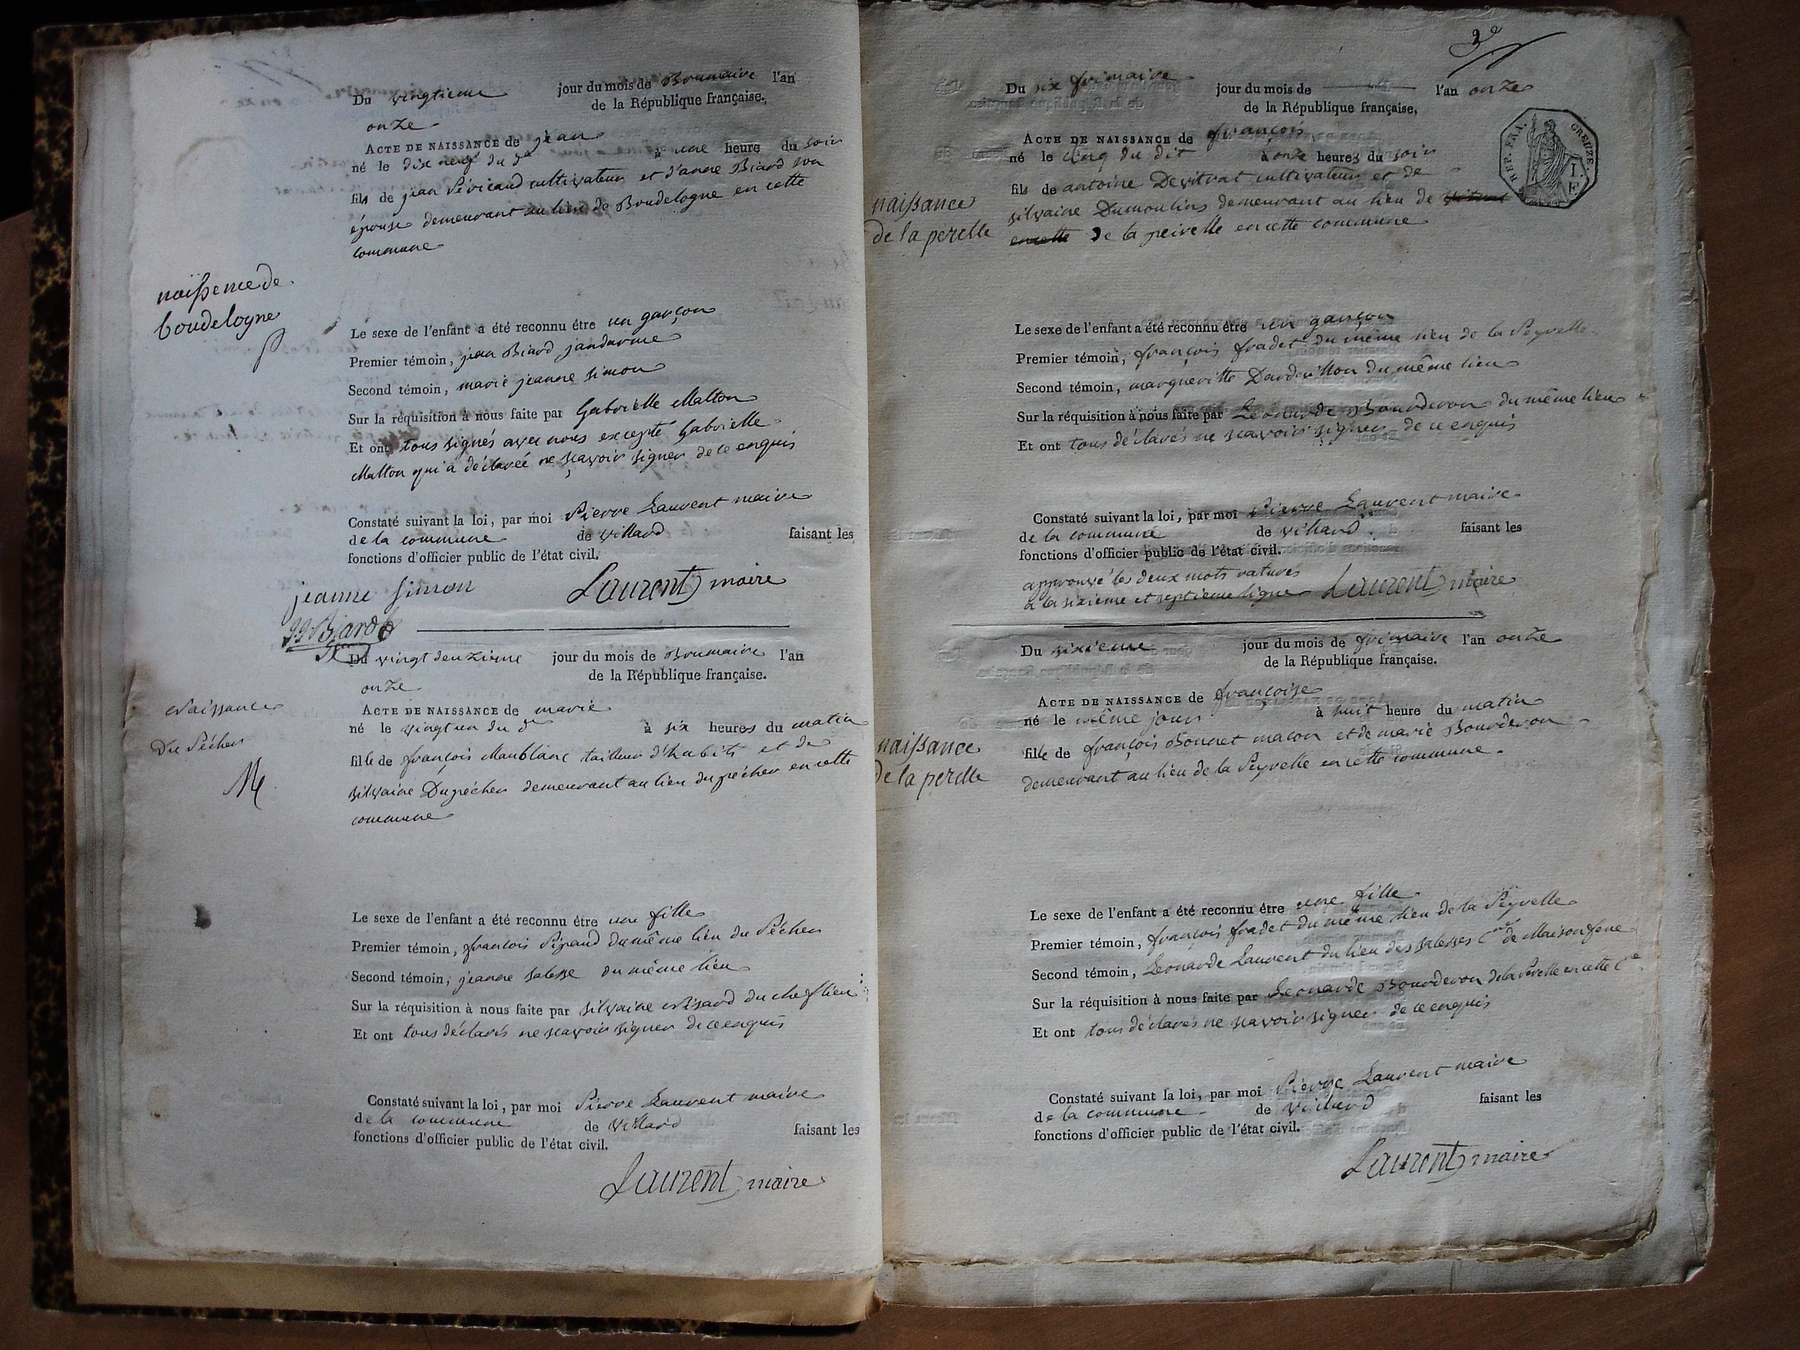 Du vingtieme jour du mois de Brumaire l'an
onze de la République française.
ACTE DE NAISSANCE de jean
né le dix neuf du d à une heure du soir
fils de jean Péricaud cultivateur et d'anne Biard son
épouse demeurant au lieu de Boudelogne en cette
commune
naissence de
boudelogne
Le sexe de l'enfant a été reconnu être un garçon
Premier témoin, jean Biard jandarme
Second témoin, marie jeanne simon
Sur la réquisition à nous faite par Gabrielle Malton
Et ont tous signés avec nous excepté Gabrielle
Malton qui a déclarée ne sçavoir signer de ce enquis
Constaté suivant la loi, par moi Pierre Laurent maire
de la commune de Villard faisant les
fonctions d'officier public de l'état civil.
jeanne simon Laurent maire
Biard
Du vingt deuxieme jour du mois de Brumaire l'an
onze de la République française.
ACTE DE NAISSANCE de marie
né le vingt un du d à six heures du matin
fille de françois Maublanc tailleur d'habits et de
silvaine Dupécher demeurant au lieu du pécher en cette
commune
Naissance
Du Pécher
Le sexe de l'enfant a été reconnu être une fille
Premier témoin, françois Pipaud du même lieu du Pécher
Second témoin, jeanne salesse du même lieu
Sur la réquisition à nous faite par silvaine du chef lieu
Et ont tous déclarés ne scavoir signer de ce enquis
Constaté suivant la loi, par moi Pierre Laurent maire
de la commune de Villard faisant les
fonctions d'officier public de l'état civil.
Laurent maire
2e
Du six frimaire jour du mois de l'an onze
de la République française,
REP. FRA. CREUZE
ACTE DE NAISSANCE de françois
né le cinq du dit à onze heures du soir
fils de antoine Devitrat cultivateur et de
silvaine Dumoulins demeurant au lieu de
encette de la peirelle en cette commune
naissance
de la perelle
Le sexe de l'enfant a été reconnu être un garçon
Premier témoin, françois fradet du même lieu de la Peyrelle
Second témoin, margueritte Dardeillon du même lieu
Sur la réquisition à nous faite par Leonarde Bourderon du même lieu
Et ont tous déclarés ne scavoir signer de ce enquis
Constaté suivant la loi, par moi Pierre Laurent maire
de la commune de Villard faisant les
fonctions d'officier public de l'état civil.
approuvé les deux mots raturés
a la sixieme et septieme ligne Laurent maire
Du sixieme jour du mois de frimaire l'an onze
de la République française.
ACTE DE NAISSANCE de françoise
né le même jour à huit heure du matin
fille de françois Bonnet macon et de marie Bourderon
demeurant au lieu de la Peyrelle en cette commune.
naissance
de la perelle
Le sexe de l'enfant a été reconnu être une fille
Premier témoin, françois fradet du même lieu de la Peyrelle
Second témoin, Leonarde Laurent du lieu des salesses Cne de Maisonfene
Sur la réquisition à nous faite par Leonarde Bourderon de la Perelle en cette Cne
Et ont tous déclarés ne scavoir signer de ce enquis
Constaté suivant la loi, par moi Pierre Laurent maire
de la commune de Villard faisant les
fonctions d'officier public de l'état civil.
Laurent maire